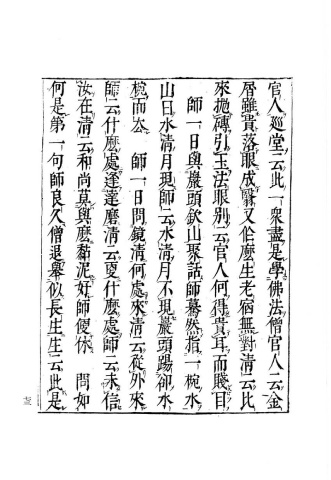 官人廵堂云此一衆盡是學佛法僧官人云金
屑雖貴落眼成翳又作麼生老宿無對清云比
來拋磚引玉法眼別云官人何得貴耳而賤目
師一日與巖頭欽山聚話師驀然指一椀水
山曰水清月現師云水清月不現巖頭踢卻水
椀而去　師一日問鏡清何處來清云從外來
師云什麼處逢達磨清云更什麼處師云未信
汝在清云和尚莫與麼粘泥好師便休　問如
何是第一句師良久僧退舉似長生生云此是